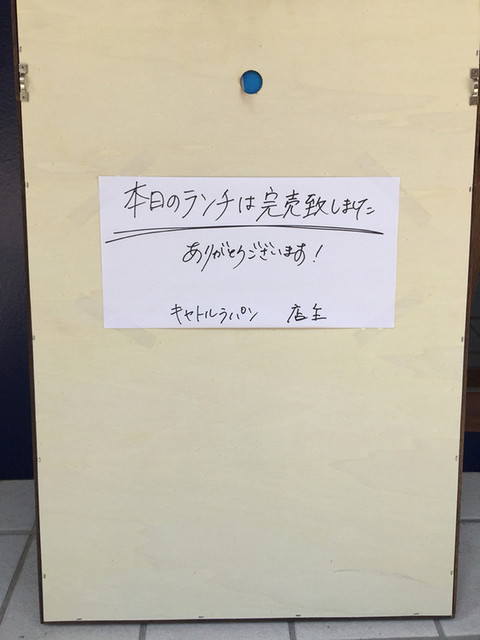 本日のランチは完売致しました
ありがとうございます!
キャトルラパン 店主